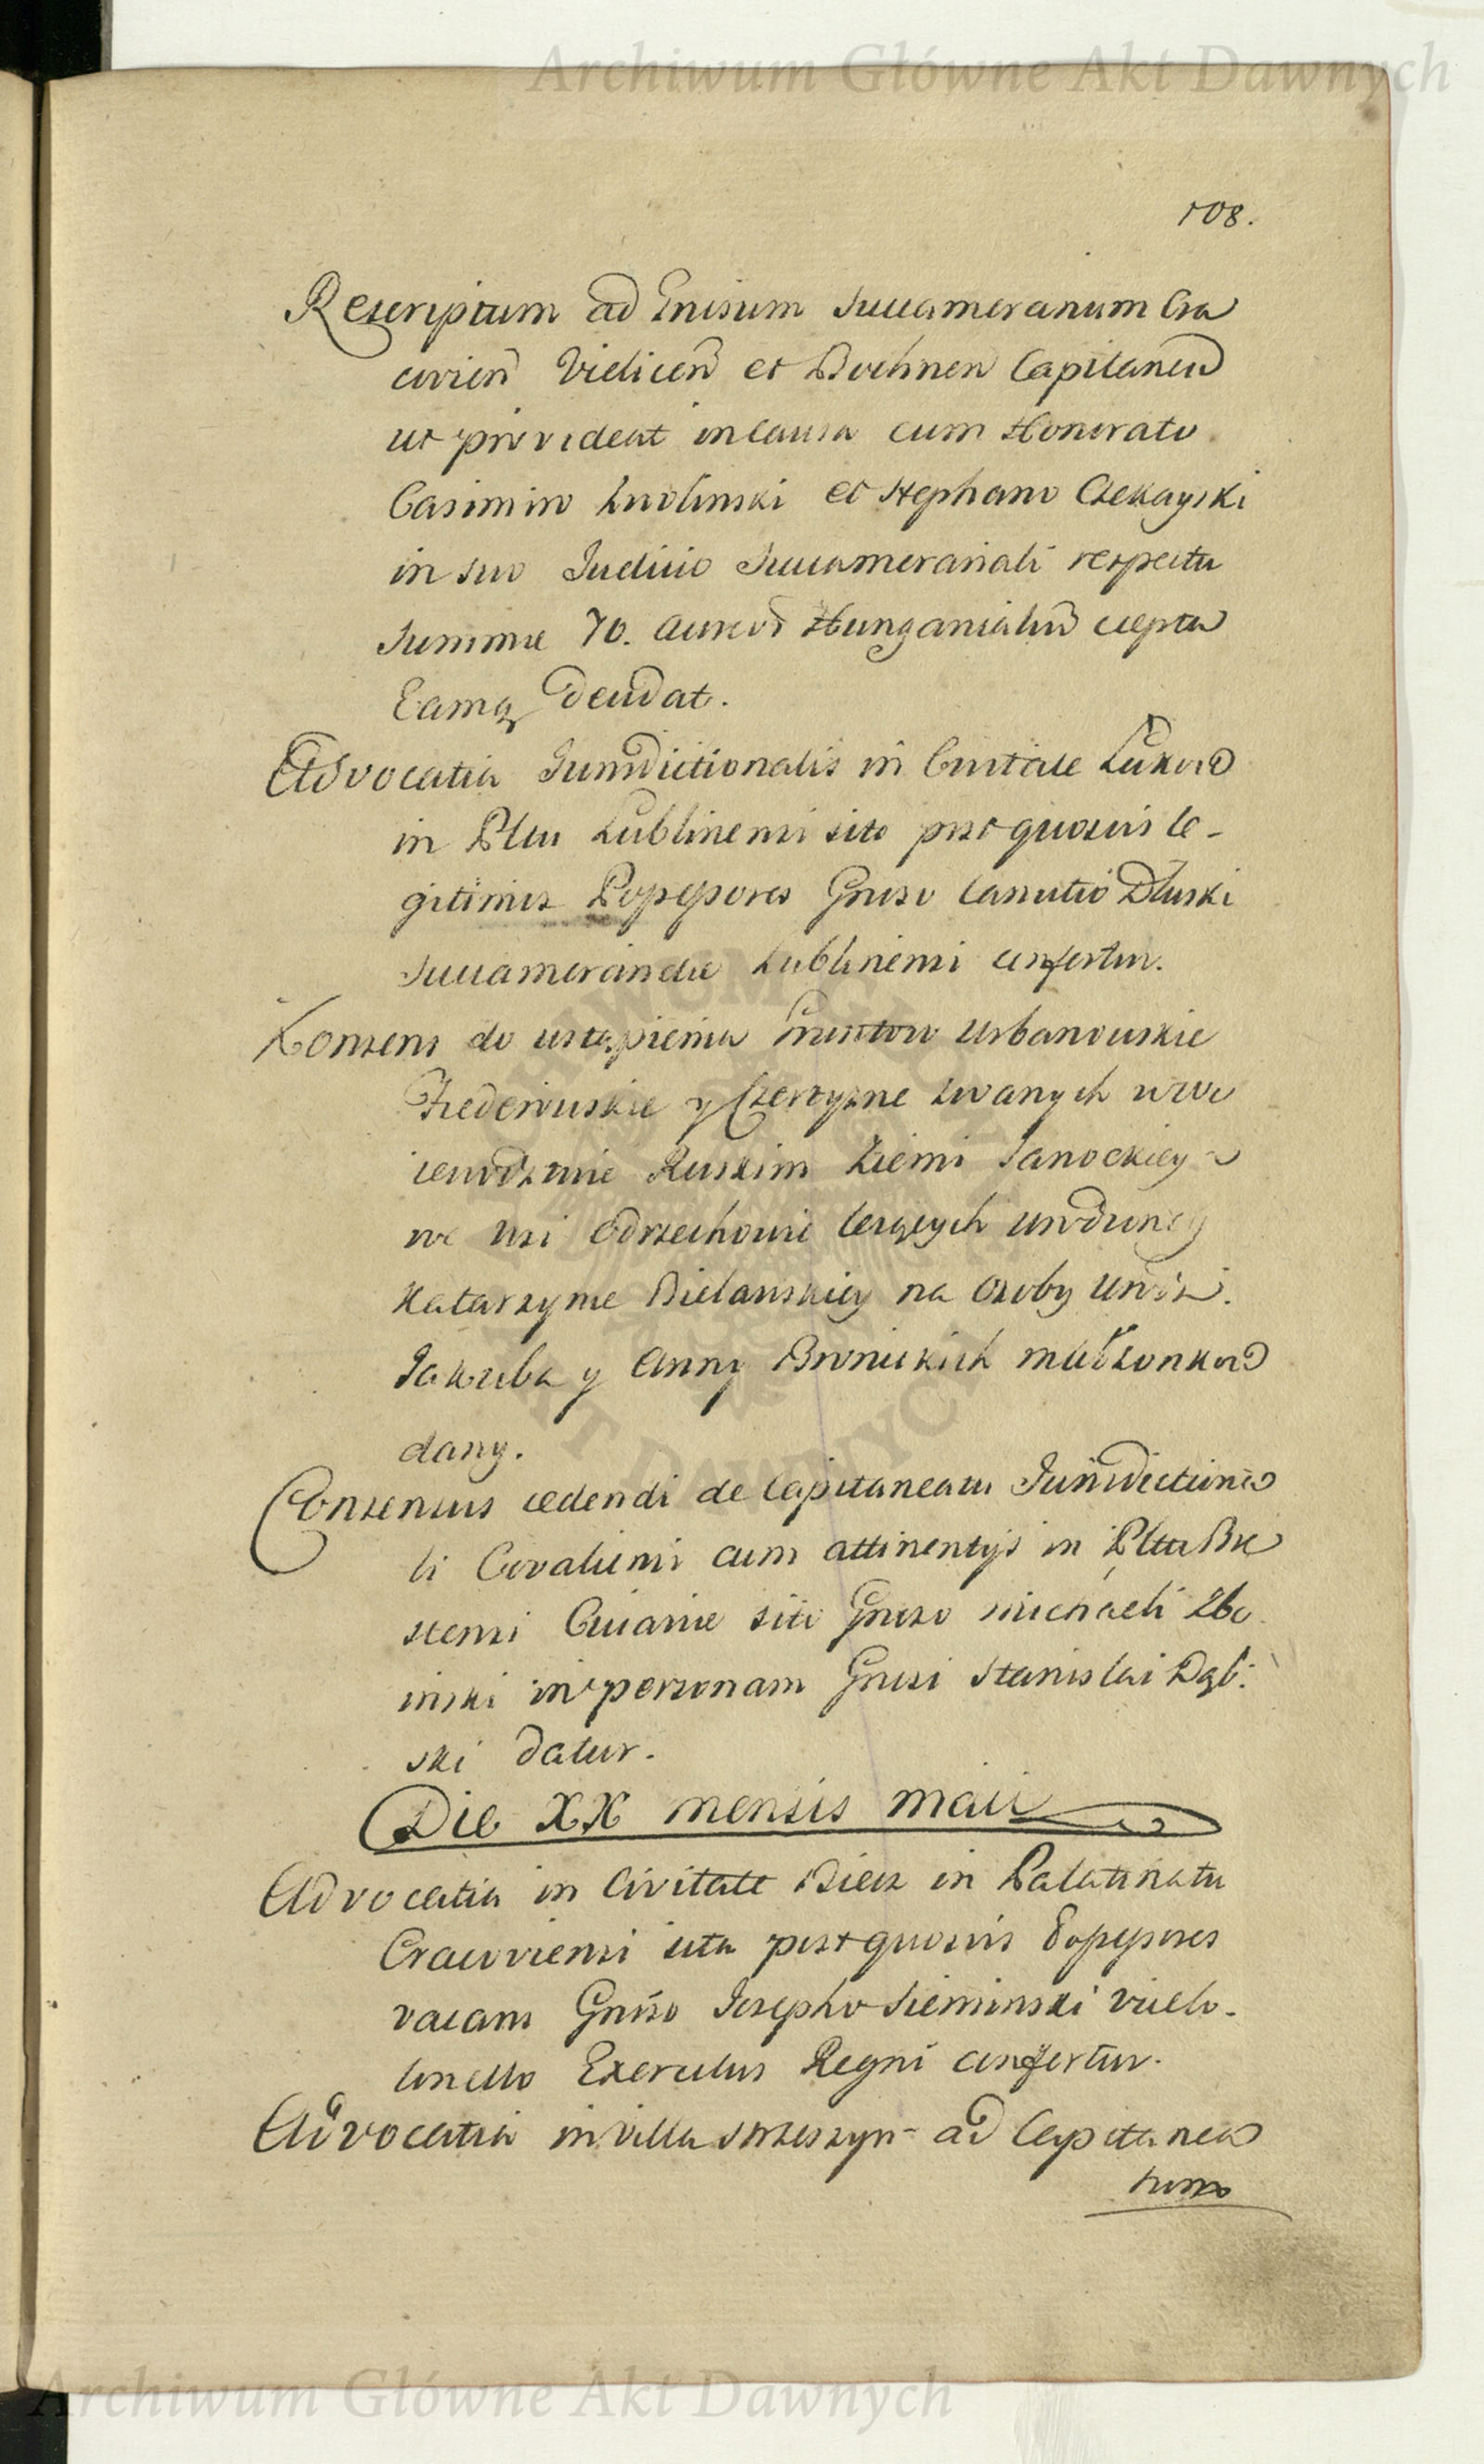 Archiwum Główne Akt Dawnych
108.
Rescriptum ad Gnisum Succameranum Cra
covien Vielicen et Bochnen Capitaneu
ut provideat in Causa cum Honorato
Casimiro et Stephano Czekayski
in suo Judicio Succameranali respectu
Summae 70. aureor Hungarialiu cepta
Eamq decidat.
Advocatia Jurisdictionalis in Civitate Lukow
in Pltu Lublinensi sito post quosvis le-
gitimos Possessores Gnoso Canutio Dłuski
Succamerando Lublinensi confertur.
Konsens do ustąpienia Gruntow Urbanowskie
y zwanych w wo
iewodztwie Ruskim Ziemi Sanockiey
we wsi Odrzechowie leżących urodzoney
Katarzynie Bielanskiey na Osoby Urodz.
Jakuba y Anny Bronickich małżonkow
dany.
Consensus cedendi de Capitaneatu Jurisdictiona
li Covaliensi cum attinentijs in Pltu Bre
stensi Cuiaviae sito Gnoso Michaeli Zbo
inski in personam Gnosi Stanislai Dąb:
ski datur.
Die XX mensis maii
Advocatia in Civitate Biecz in Palatinatu
Cracoviensi sita post quosvis Possessores
vacans Gnoso Josepho Sieminski vicelo-
lonello Exercitus Regni confertur.
Advocatia in villa Strzeszyn ad Capitanea
tum
ARCHIWUM GŁÓWNE AKT DAWNYCH
Archiwum Główne Akt Dawnych